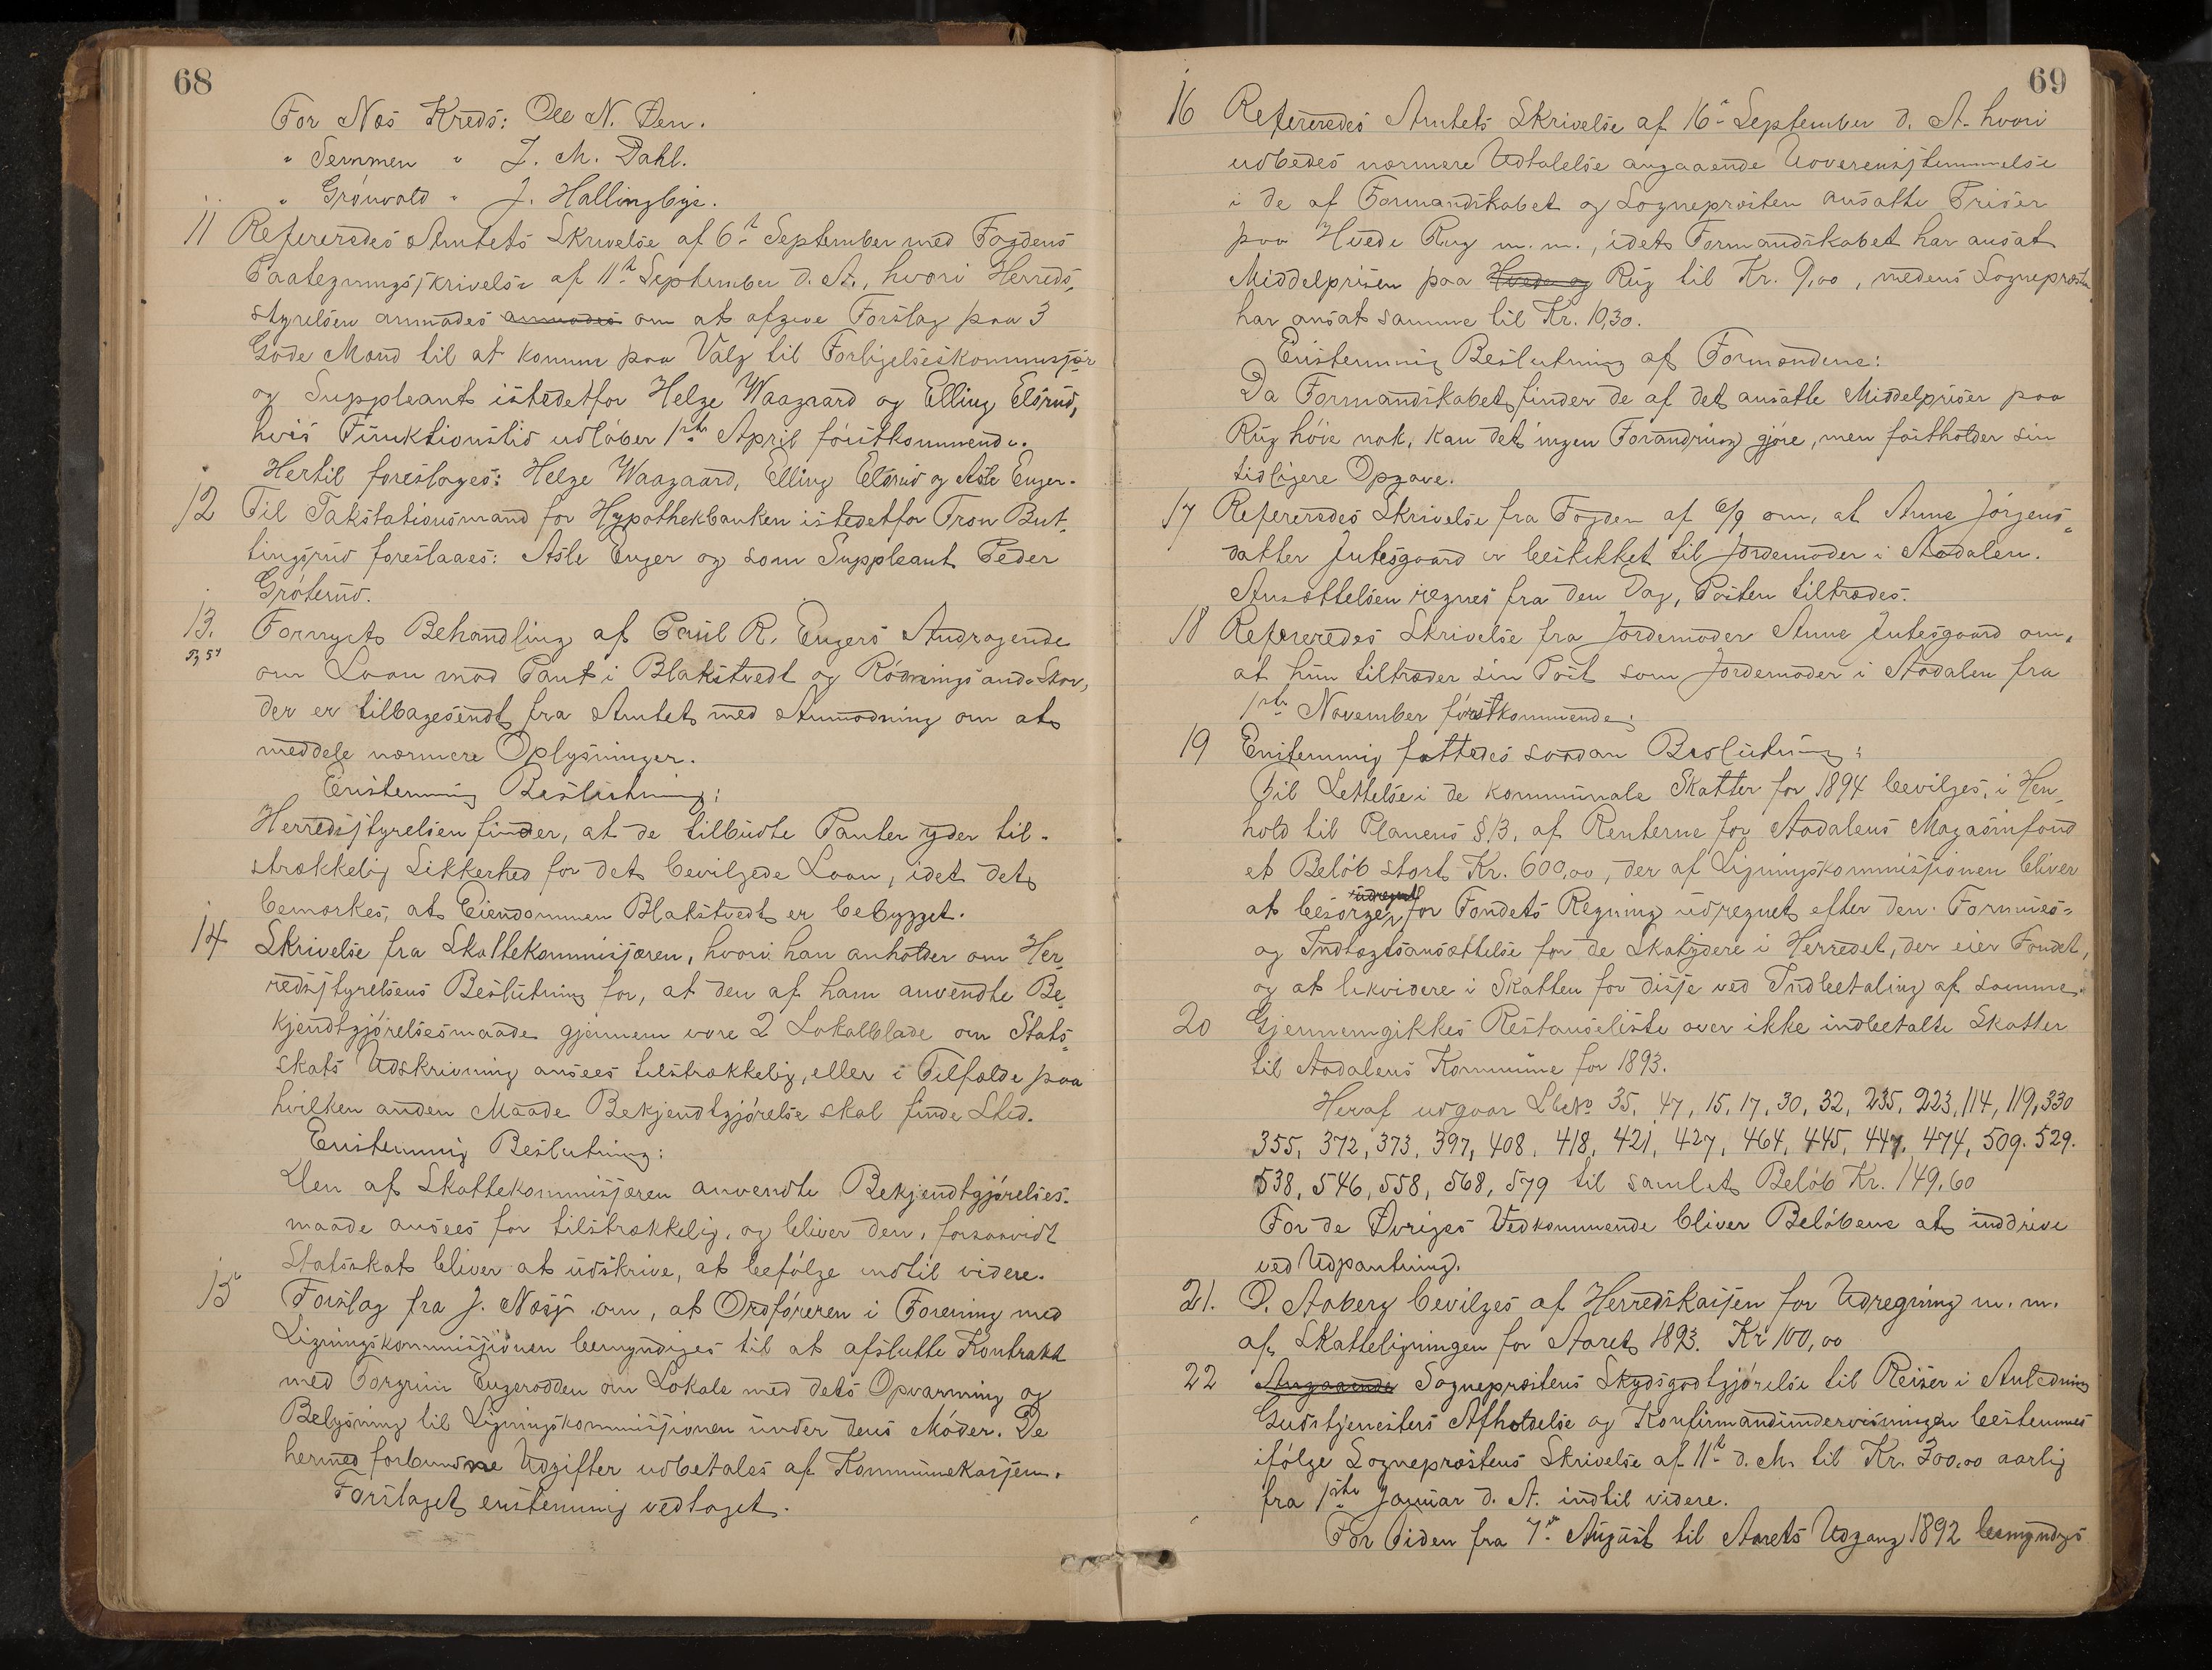 68
For Næs Kreds: Ole N. Øen.
" Semmen " J. M. Dahl.
" Grönvold " J. Hallingbye.
11 Refereredes Amtets Skrivelse af 6te September med Fogdens
Paategningsskrivelse af 11te September d. A., hvori Herreds-
styrelsen anmodes anmodes om at afgive Forslag paa 3
Gode Mænd til at komme paa Valg til Forligelseskommisær
og Suppleant istedetfor Helge Waagaard og Elling Elsrud,
hvis Funktionstid udlöber 1ste April förstkommende.
Hertil foreslages: Helge Waagaard, Elling Elsrud og Asle Enger.
12 Til Takstationsmand for Hypothekbanken istedetfor Tron But-
tingsrud foreslaaes: Asle Enger og som Suppleant Peder
Gröterud.
13. Fornyet Behandling af Paul R. Engers Andragende
om Laan mod Pant i Blakstvedt og Rönningsand Skov,
der er tilbagesendt fra Amtet med Anmodning om at
meddele nærmere Oplysninger.
Enstemmig Beslutning:
Herredsstyrelsen finder, at de tilbudte Panter yder til-
strækkelig Sikkerhed for det bevilgede Laan, idet det
bemærkes, at Eiendommen Blakstvedt er bebygget.
14 Skrivelse fra Skattekommisæren, hvori han anholder om Her-
redsstyrelsens Beslutning for, at den af ham anvendte Be-
kjendtgjörelsesmaade gjennem vore 2 Lokalblade om Stats-
skats Udskrivning ansees tilstrækkelig, eller i Tilfælde paa
hvilken anden Maade Bekjendtgjörelse skal finde Sted.
Enstemmig Beslutning:
Den af Skattekommisæren anvendte Bekjendtgjörelses-
maade ansees for tilstrækkelig, og bliver den, forsaavidt
Statsskat bliver at udskrive, at befölge indtil videre.
15 Forslag fra J. Næss om, at Ordföreren i Forening med
Ligningskommissionen bemyndiges til at afslutte Kontrakt
med Torgrim Engerodden om Lokale med dets Opvarming og
Belysning til Ligningskommissionen under dens Möder. De
hermed forbundne Udgifter udbetales af Kommunekassen.
Forslaget enstemmig vedtaget.
69
16 Refereredes Amtets Skrivelse af 16de September d. A. hvori
udbedes nærmere Udtalelse angaaende Uoverensstemmelse
i de af Formandskabet og Sogneprästen ansatte Priser
paa Hvede Rug m. m., idet Formandskabet har ansat
Middelprisen paa Hvede og Rug til Kr. 9,00, medens Sogneprästen
har ansat samme til Kr. 10,30.
Enstemmig Beslutning af Formændene:
Da Formandskabet finder de af det ansatte Middelpriser paa
Rug höie nok, kan det ingen Forandring gjöre, men fastholder sin
tidligere Opgave.
17 Refereredes Skrivelse fra Fogden af 6/9 om, at Anne Jörgens-
datter Jutesgaard er beskikket til Jordemoder i Aadalen.
Ansættelsen regnes fra den Dag, Posten tiltrædes.
18 Refereredes Skrivelse fra Jordemoder Anne Jutesgaard om,
at hun tiltræder sin Post som Jordemoder i Aadalen fra
1ste November förstkommende.
19 Enstemmig fattedes saadan Beslutning:
Til Lettelse i de kommunale Skatter for 1894 bevilges, i Hen-
hold til Planens § 13, af Renterne for Aadalens Magasinfond
et Belöb stort Kr. 600,00, der af Ligningskommissionen bliver
udregnet
at besörge for Fondets Regning udregnet efter den Formues-
og Indtægtsansættelse for de Skatydere i Herredet, der eier Fondet,
og at likvidere i Skatten for disse ved Indbetaling af samme.
20 Gjennemgikkes Restanseliste over ikke indbetalte Skatter
til Aadalens Kommune for 1893.
Heraf udgaar Lbe No 35, 47, 15, 17, 30, 32, 235, 223, 114, 119, 330
355, 372, 373, 397, 408, 418, 421, 427, 464, 445, 447, 474, 509. 529.
538, 546, 558, 568, 579 til samlet Belöb Kr. 149.60
For de Övriges Vedkommende bliver Belöbene at inddrive
ved Udpantning.
21. O. Aaberg bevilges af Herredskassen for Udregning m. m.
af Skatteligningen for Aaret 1893. Kr 100,00
22 Angaaende Sogneprästens Skydsgodtgjörelse til Reiser i Anledning
Gudstjenesters Afholdelse og Konfirmandundervisningen bestemmes
ifölge Sogneprästens Skrivelse af 11te d. M. til Kr. 300,00 aarlig
fra 1ste Januar d. A. indtil videre.
For Tiden fra 7de August til Aarets Udgang 1892 bemyndiges